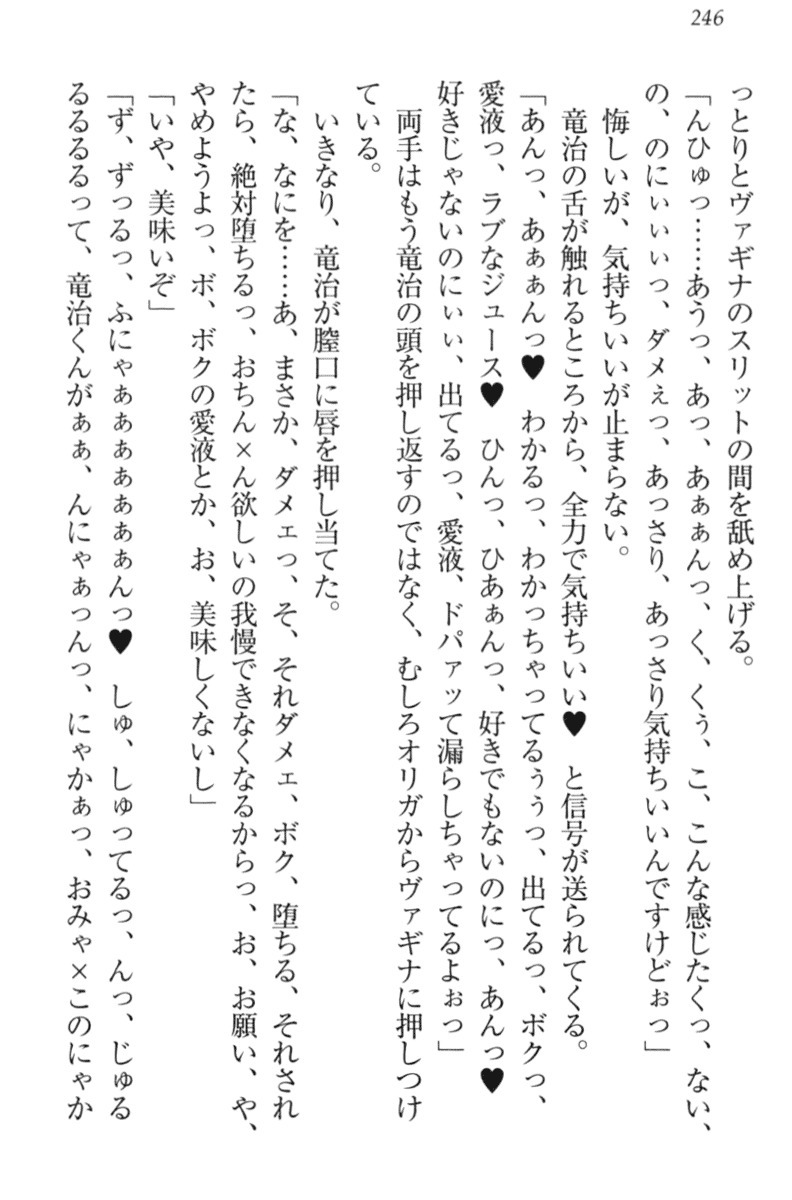 246
っとりとヴァギナのスリットの間を舐め上げる。
「んひゅっ……あうっ、あっ、あぁぁんっ、く、くぅ、こ、こんな感じたくっ、ない、
の、のにぃぃぃっ、ダメぇっ、あっさり、あっさり気持ちいいんですけどぉっ」
悔しいが、気持ちいいが止まらない。
竜治の舌が触れるところから、全力で気持ちいい♥　と信号が送られてくる。
「あんっ、あぁぁんっ♥　わかるっ、わかっちゃってるぅぅっ、出てるっ、ボクっ、
愛液っ、ラブなジュース♥　ひんっ、ひあぁんっ、好きでもないのにっ、あんっ♥
好きじゃないのにぃぃ、出てるっ、愛液、ドパァッて漏らしちゃってるよぉっ」
両手はもう竜治の頭を押し返すのではなく、むしろオリガからヴァギナに押しつけ
ている。
いきなり、竜治が膣口に唇を押し当てた。
「な、なにを……あ、まさか、ダメェっ、そ、それダメェ、ボク、堕ちる、それされ
たら、絶対堕ちるっ、おちん×ん欲しいの我慢できなくなるからっ、お、お願い、や、
やめようよっ、ボ、ボクの愛液とか、お、美味しくないし」
「いや、美味いぞ」
「ず、ずっるっ、ふにゃぁぁぁぁぁぁぁんっ♥　しゅ、しゅってるっ、んっ、じゅる
るるるるって、竜治くんがぁぁ、んにゃぁっんっ、にゃかぁっ、おみゃ×このにゃか